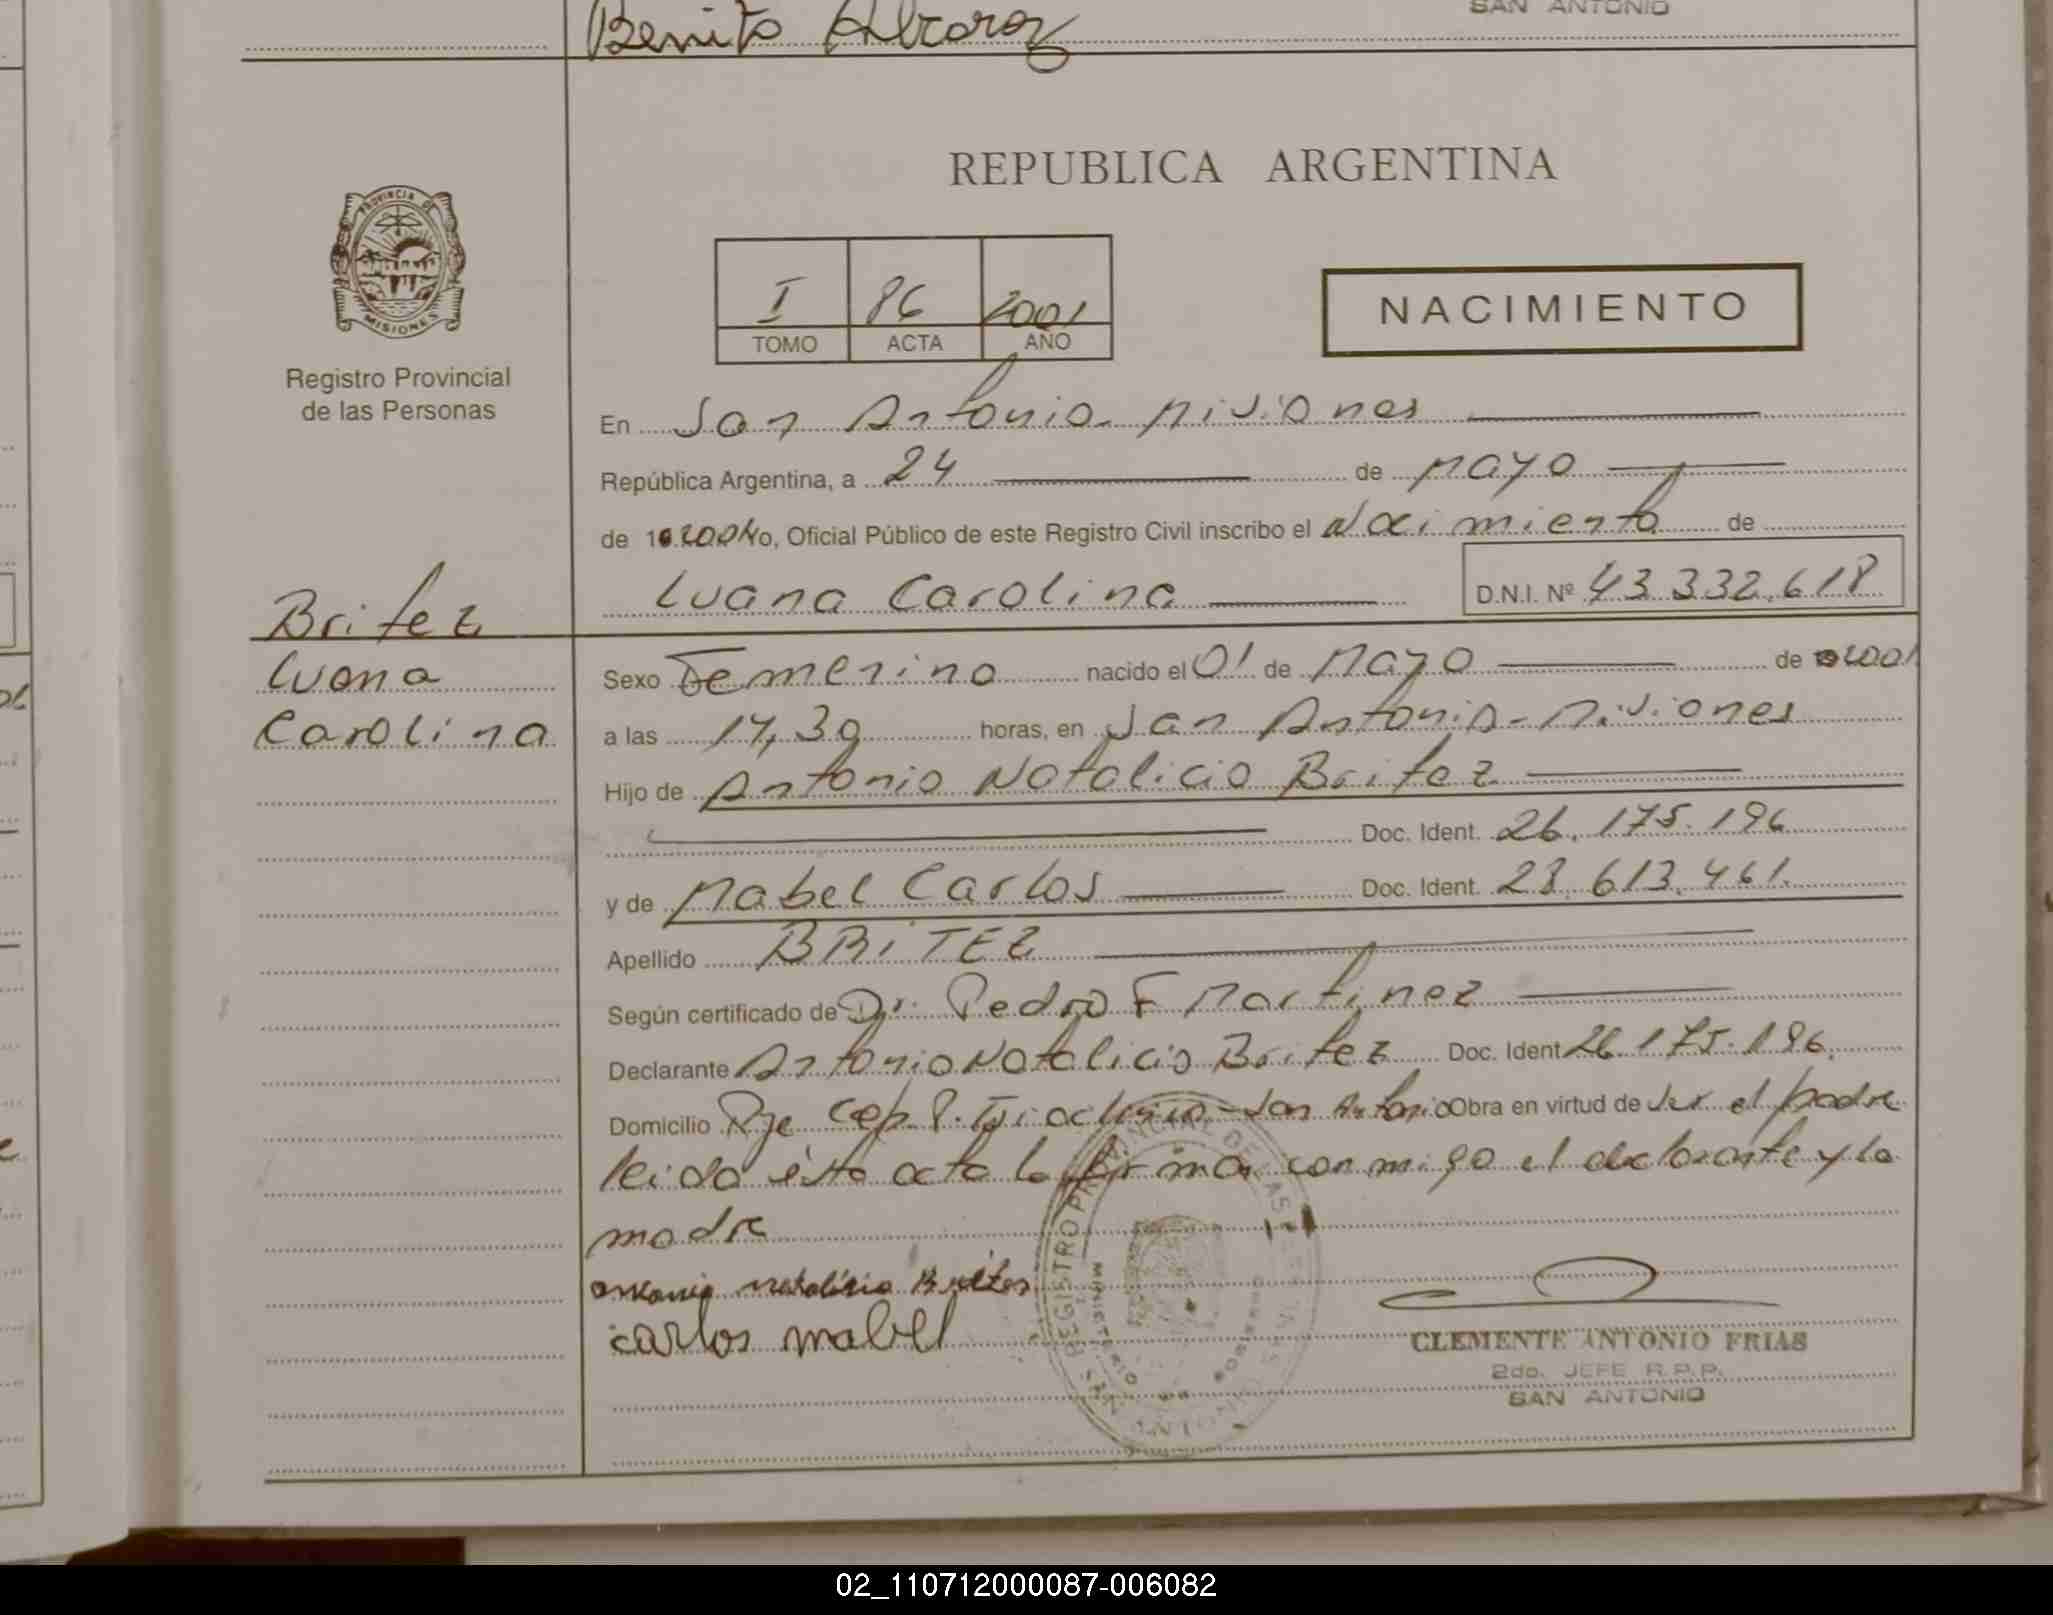 Benito Alvarez
SAN ANTONIO
REPUBLICA ARGENTINA
PROVINCIA DE
MISIONES
I 86 2001
TOMO ACTA AÑO
NACIMIENTO
Registro Provincial
de las Personas
En San Antonio - Misiones
República Argentina, a 24 de Mayo
de 2001 Yo, Oficial Público de este Registro Civil inscribo el Nacimiento de
Luana Carolina D.N.I. Nº 43.332.618
Britez
Luana
Carolina
Sexo Femenino nacido el 01 de Mayo de 2001
a las 14,30 horas, en San Antonio - Misiones
Hijo de Antonio Natalicio Britez
Doc. Ident. 26.175.196
y de Mabel Carlos Doc. Ident. 28.613.461
Apellido BRITEZ
Según certificado de Dr. Pedro F Martinez
Declarante Antonio Natalicio Britez Doc. Ident 26.175.196
Domicilio Pje San Antonio Obra en virtud de ser el padre
leida ésta acta la firma conmigo el declarante y la
madre
antonio natalicio Britez
carlos mabel
REGISTRO PROVINCIAL DE LAS
MINISTERIO DE GOBIERNO
CLEMENTE ANTONIO FRIAS
2do. JEFE R.P.P.
SAN ANTONIO
02_110712000087-006082